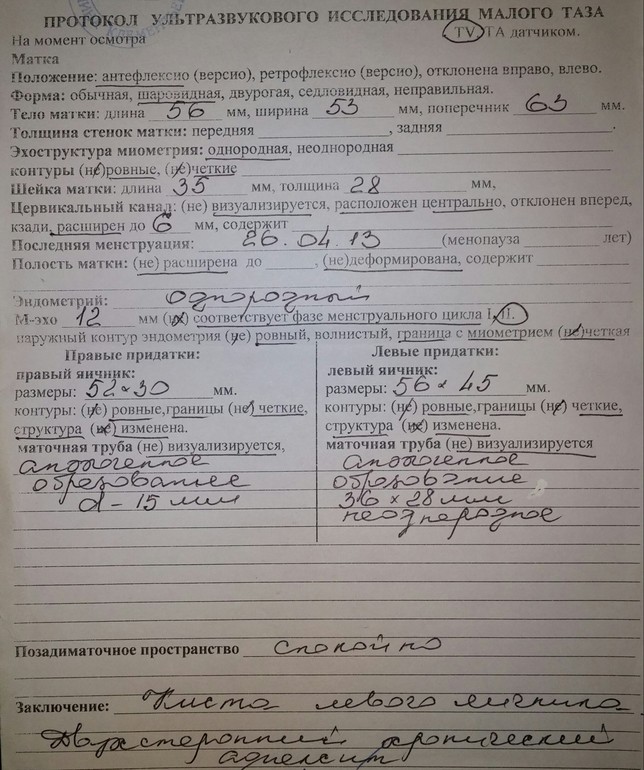 ПРОТОКОЛ УЛЬТРАЗВУКОВОГО ИССЛЕДОВАНИЯ МАЛОГО ТАЗА
На момент осмотра TV, TA датчиком.
Матка
Положение: антефлексио (версио), ретрофлексио (версио), отклонена вправо, влево.
Форма: обычная, шаровидная, двурогая, седловидная, неправильная.
Тело матки: длина 56 мм, ширина 53 мм, поперечник 63 мм.
Толщина стенок матки: передняя , задняя .
Эхоструктура миометрия: однородная, неоднородная
контуры (не)ровные, (не)четкие
Шейка матки: длина 35 мм, толщина 28 мм,
Цервикальный канал: (не) визуализируется, расположен центрально, отклонен вперед,
кзади, расширен до 6 мм, содержит
Последняя менструация: 26.04.13 (менопауза лет)
Полость матки: (не) расширена до , (не)деформирована, содержит
Эндометрий: однородный
М-эхо 12 мм (не) соответствует фазе менструального цикла I, II.
наружный контур эндометрия (не) ровный, волнистый, граница с миометрием (не)четкая
Правые придатки:
правый яичник:
размеры: 52 × 30 мм.
контуры: (не) ровные, границы (не) четкие,
структура (не) изменена.
маточная труба (не) визуализируется,
анэхогенное
образование
d - 15 мм
Левые придатки:
левый яичник:
размеры: 56 × 45 мм.
контуры: (не) ровные, границы (не) четкие,
структура (не) изменена.
маточная труба (не) визуализируется
анэхогенное
образование
36 × 28 мм
неоднородное
Позадиматочное пространство спокойно
Заключение: Киста левого яичника.
Двухсторонний хронический
аднексит